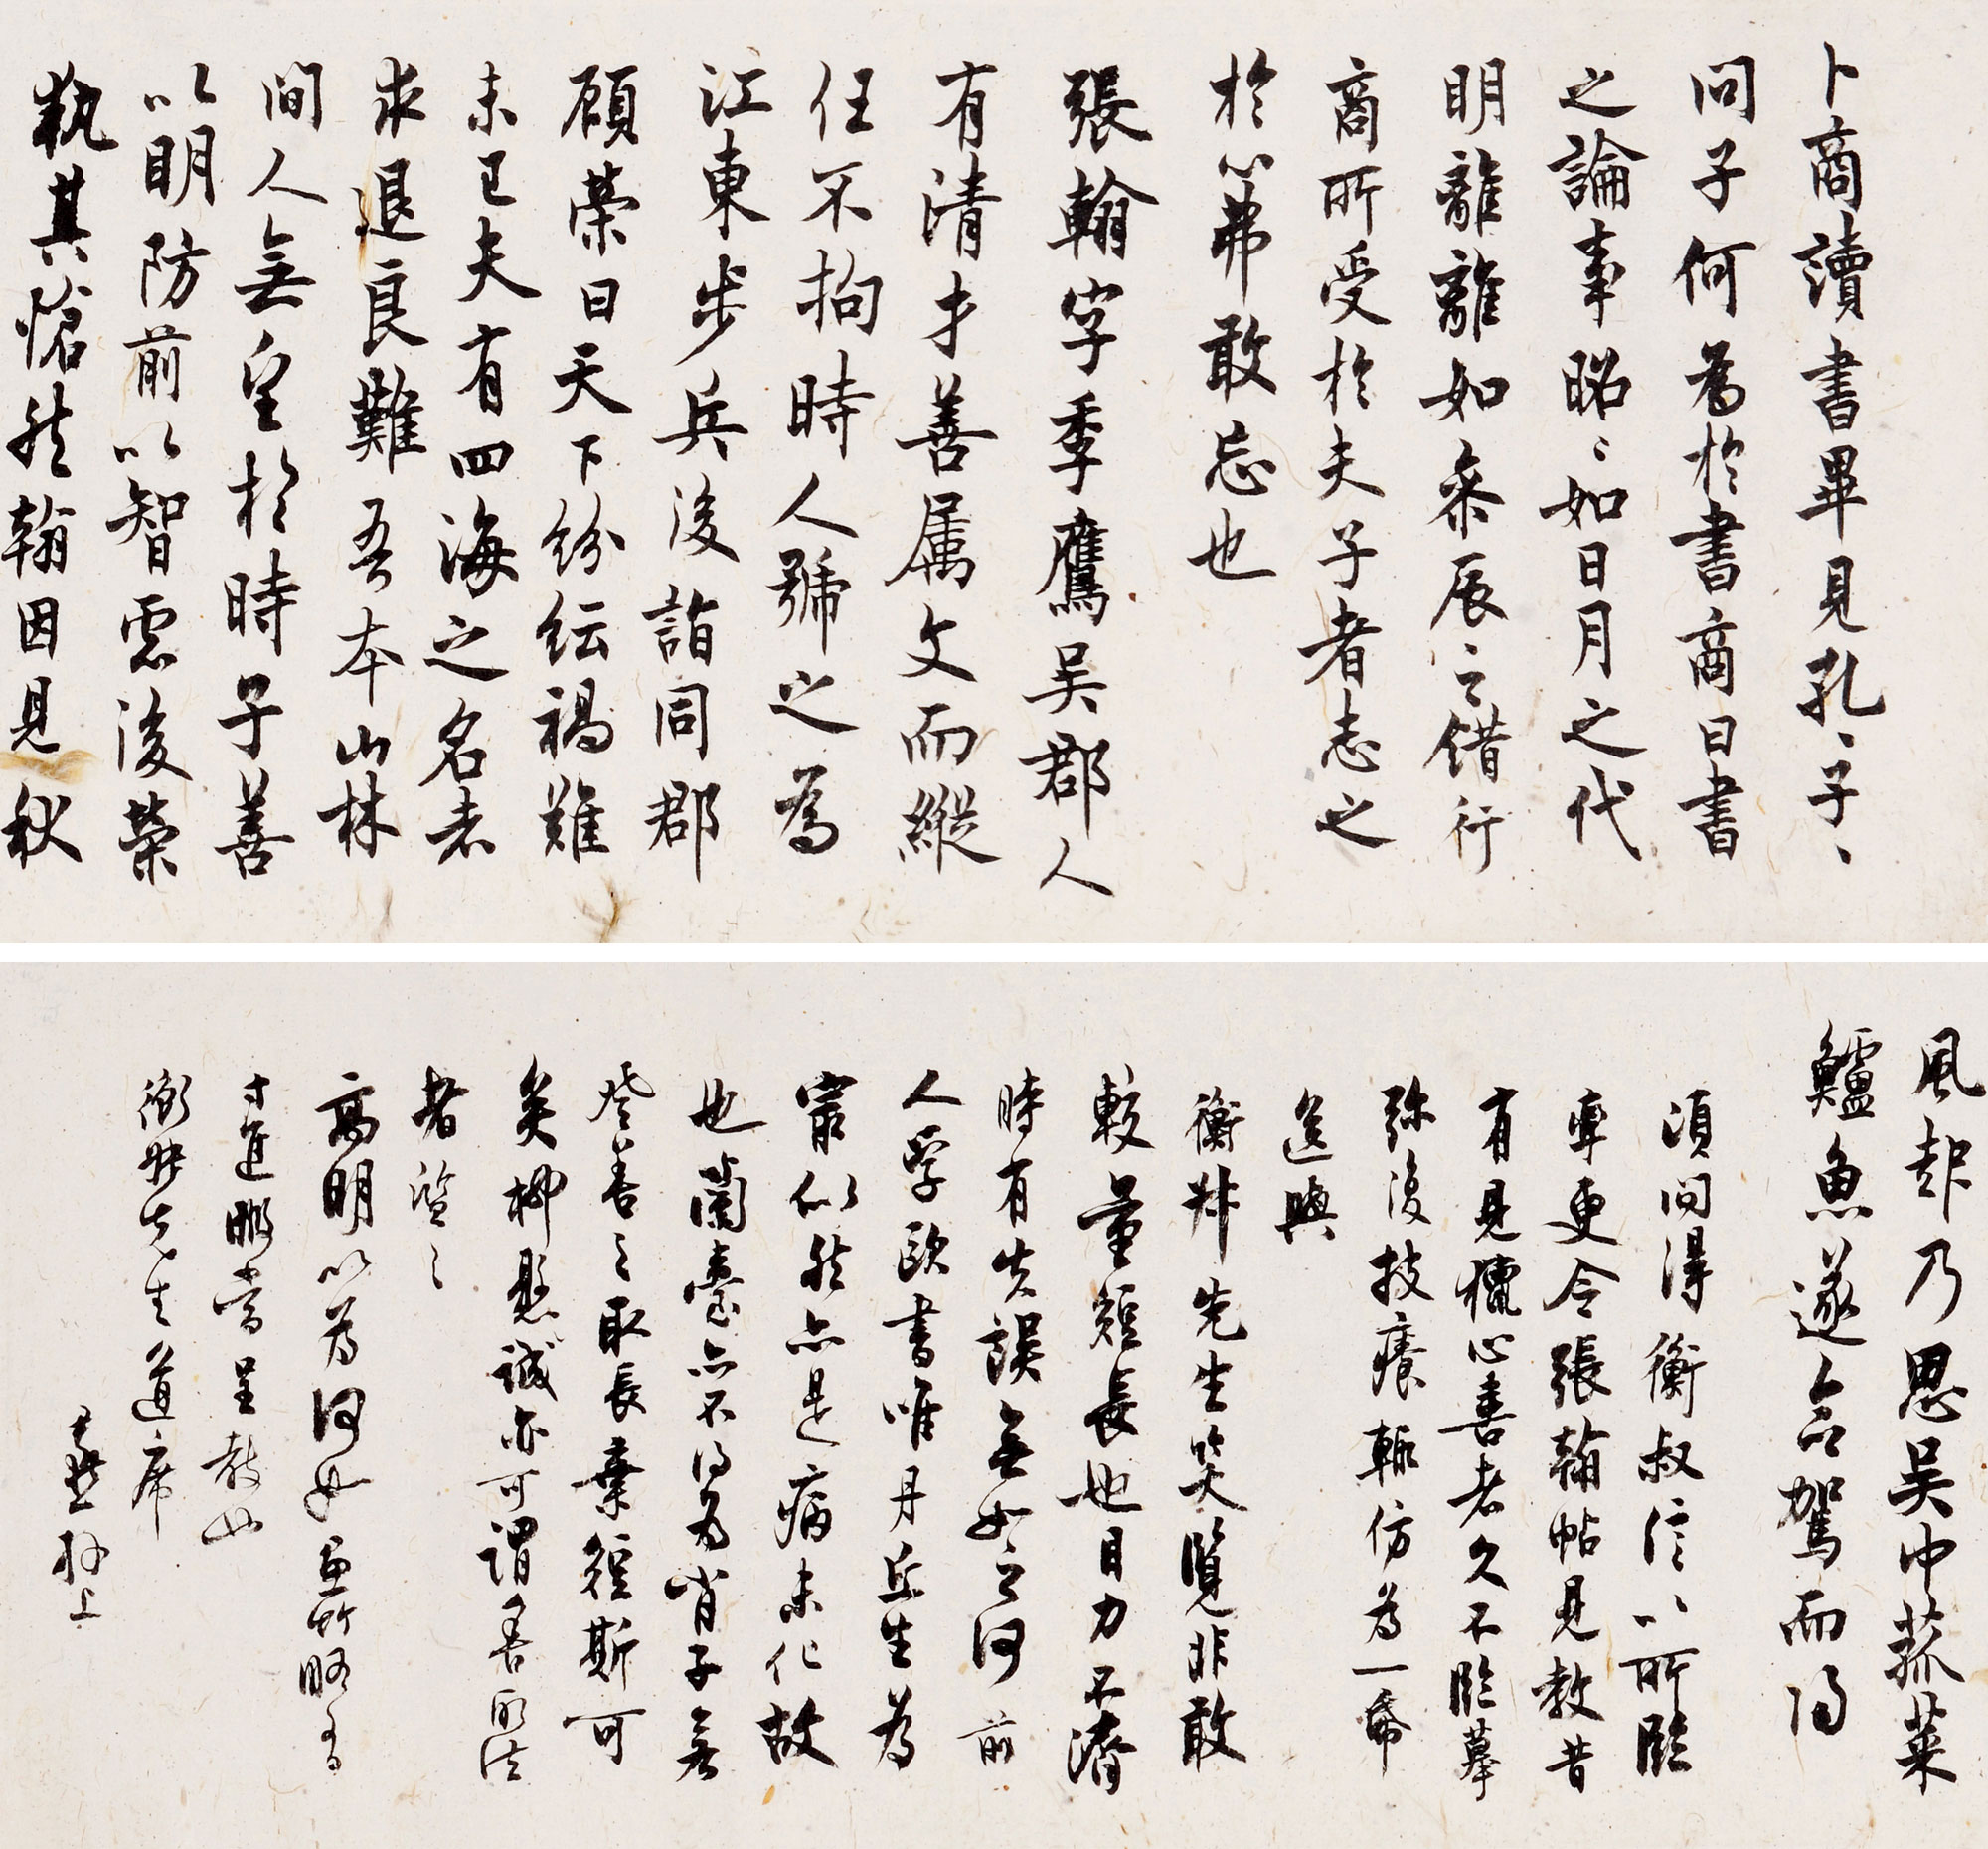 卜商讀書畢見孔〻子〻
問子何為於書商曰書
之論事昭〻如日月之代
明離離如參辰之錯行
商所受於夫子者志之
於心弗敢忘也
張翰字季鷹吳郡人
有清才善属文而縱
任不拘時人號之為
江東步兵後詣同郡
顧榮曰天下紛紜禍難
未已夫有四海之名者
求退良難吾本山林
間人無望於時子善
以明防前以智慮後榮
執其愴然翰因見秋
風起乃思吳中菰菜
鱸魚遂命駕而歸
頃間得衡叔信以所臨
率更令張翰帖見教昔
有見獵心喜者久不臨摹
弥後技癢輒仿為一希
送與
衡叔先生笑覽非敢
較量短長也目力不濟
時有失誤無如之何前
人學歐書唯丹丘生為
最似然亦是病未化故
也蘭臺亦不得為肖子無
它善之取長棄短斯可
矣柳懸誠亦可謂善取法
者鑒之
高明以為何如
寸進敝當呈教也
衡叔先生道席
上